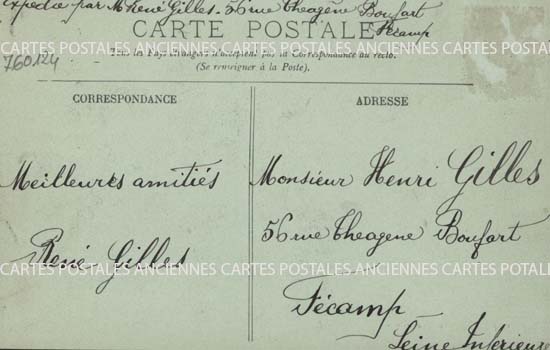 Expédié par Mr René Gilles. 56 rue Theagène Boufart
CARTE POSTALE
Fécamp
ANCIENNES CARTES POSTALES ANCIENNES CARTES POSTALES ANCIENNES CARTES POSTALES
760124
Tous les Pays étrangers n'acceptent pas la Correspondance au recto.
(Se renseigner à la Poste).
CORRESPONDANCE
Meilleures amitiés
René Gilles
ADRESSE
Monsieur Henri Gilles
56 rue Theagene Boufart
Fécamp
Seine Inferieure
CARTES POSTALES ANCIENNES CARTES POSTALES ANCIENNES CARTES POTALES